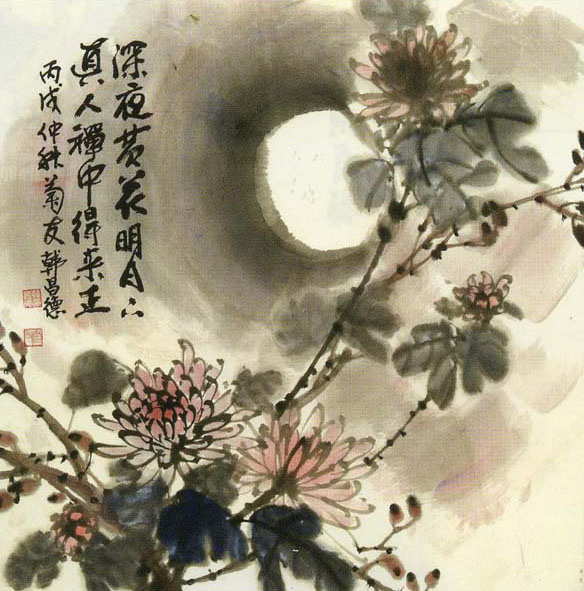 深夜黄花明月下
真人禅中得来王
丙戌仲秋菊友韩昌德